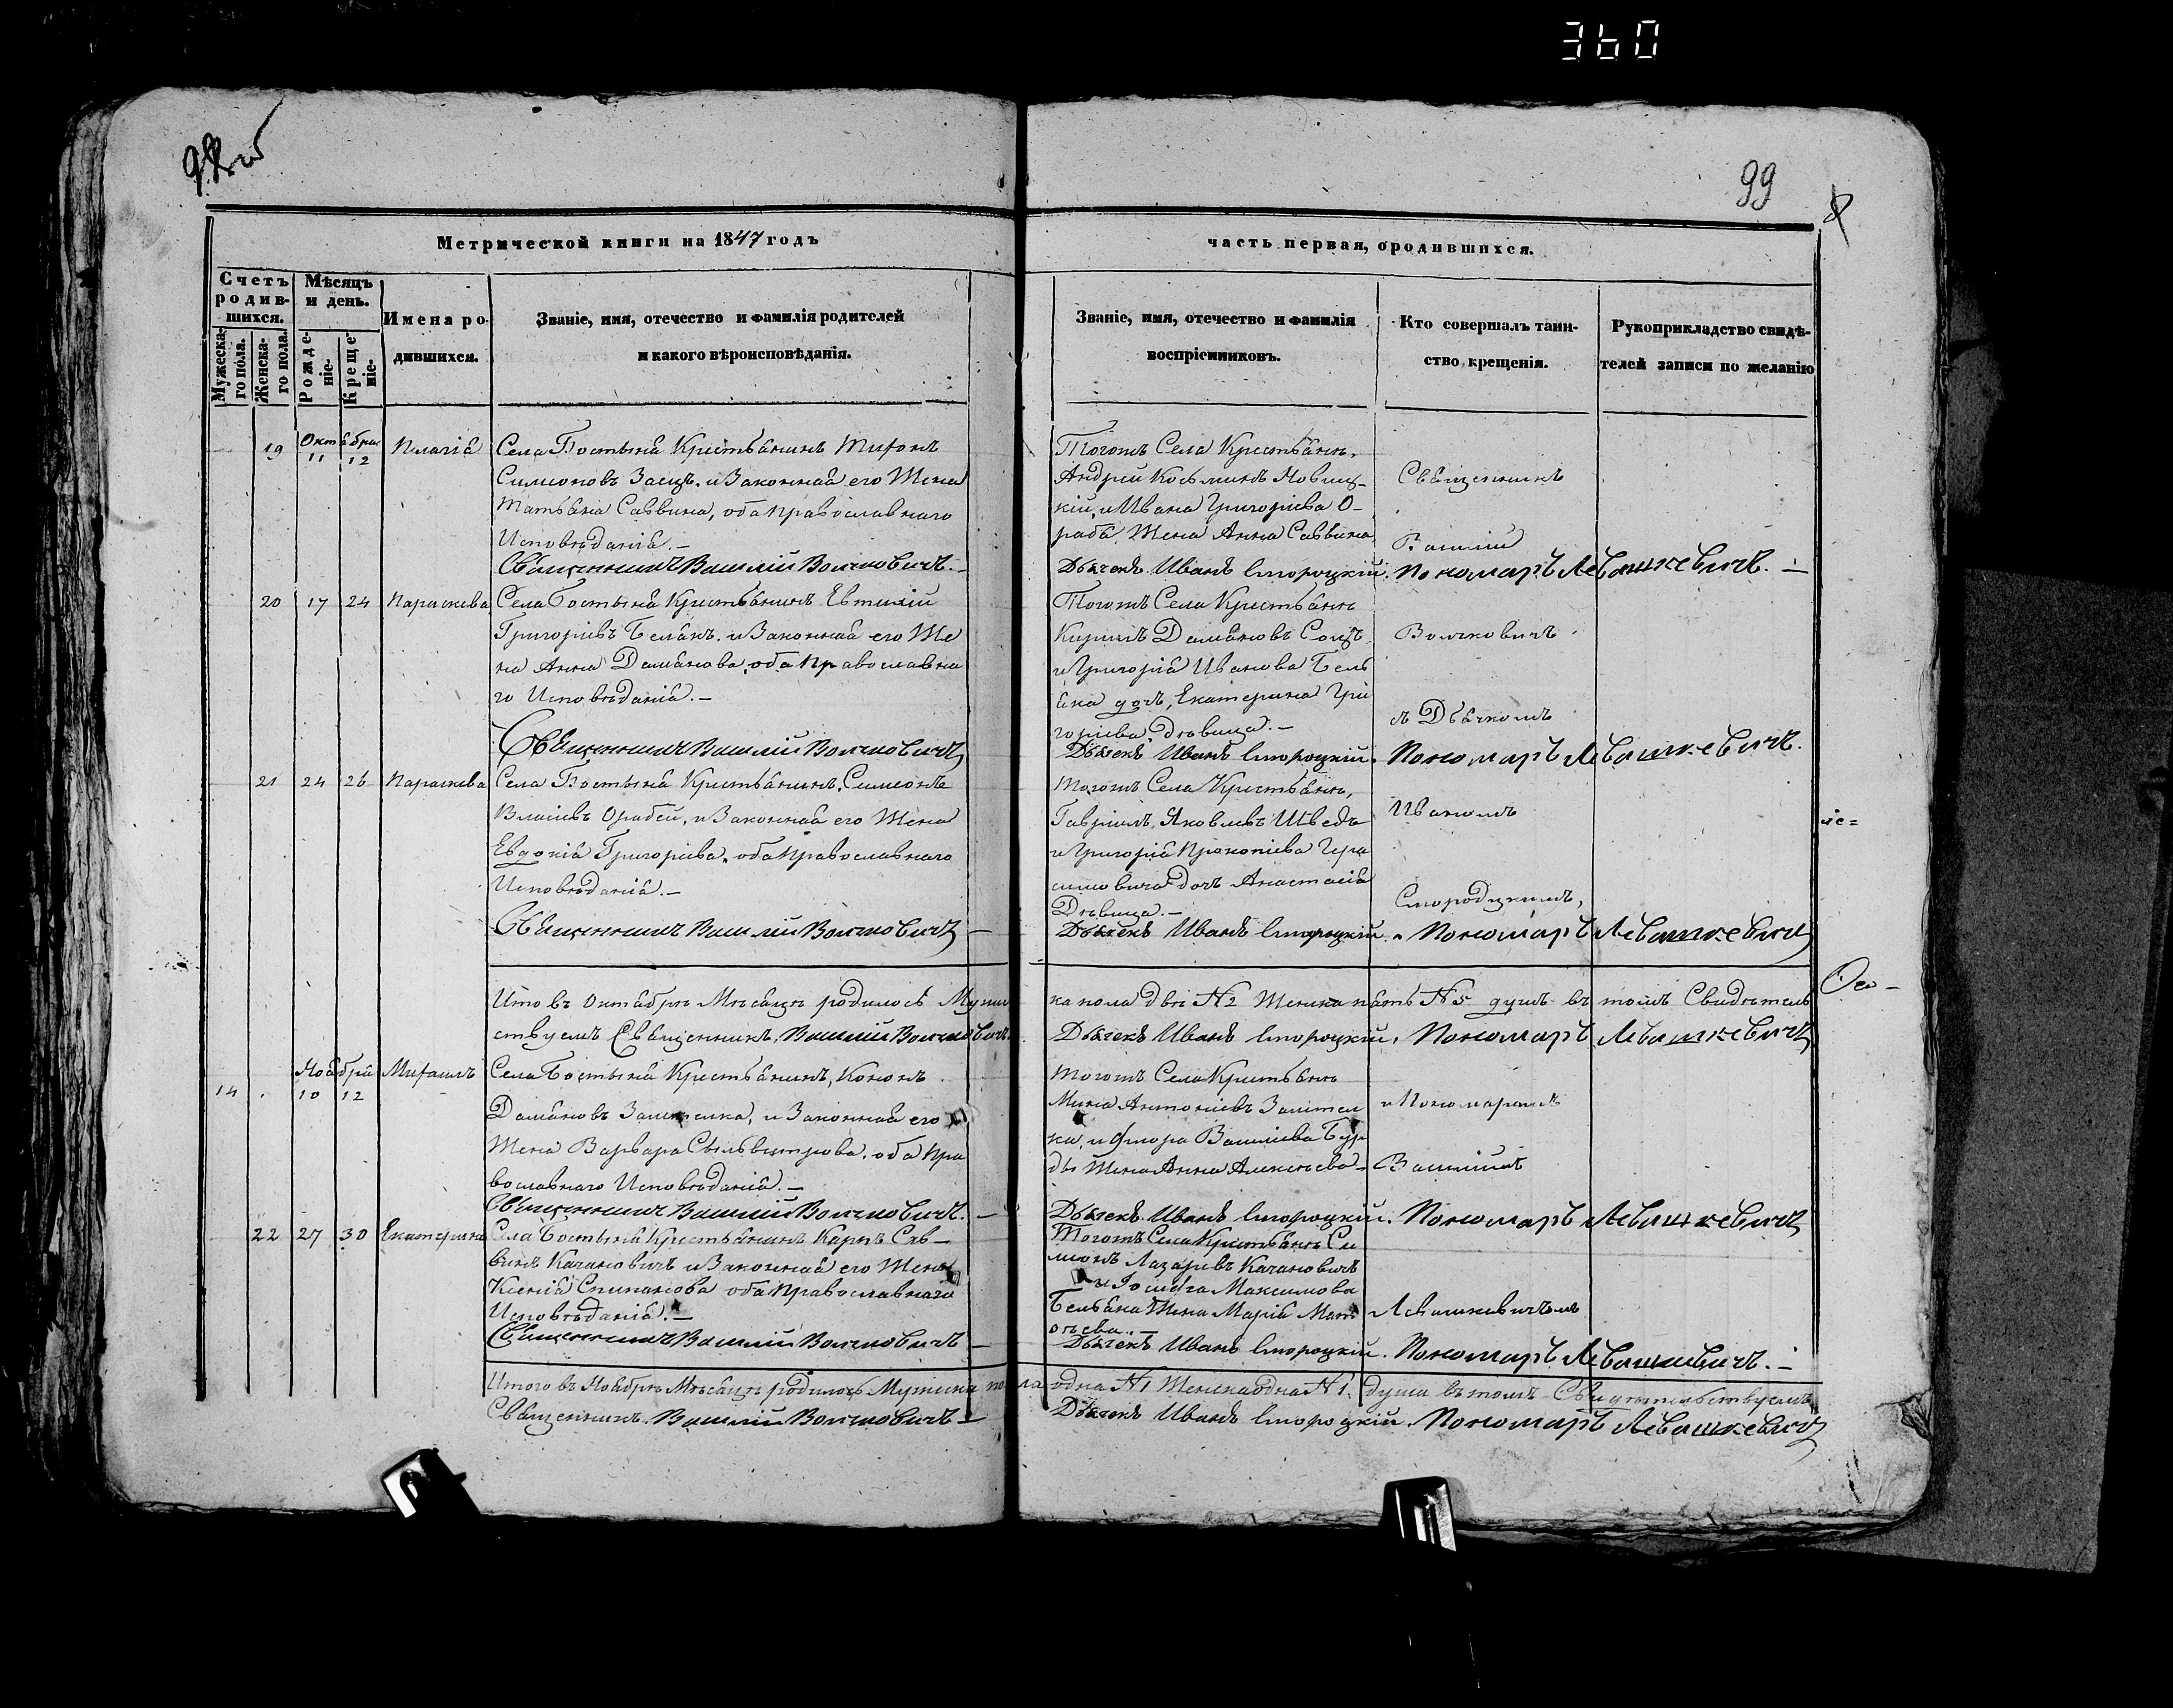 360
99
Метрической книги на 1847 годъ
часть первая, о родившихся.
Счетъ родившихся.
Мѣсяцъ и день.
Мужескаго пола.
Женскаго пола.
Рожденіе.
Крещеніе.
Имена родившихся.
Званіе, имя, отечество и фамилія родителей
и какого вѣроисповѣданія.
Званіе, имя, отечество и фамилія
воспріемниковъ.
Кто совершалъ таин-
ство крещенія.
Рукоприкладство свидѣ-
телей записи по желанію
Октября
19 11 12 Пелагія Села Гостыня Крестьянинъ Тифонъ
Симеоновъ Заецъ, и Законная его Жена
Татьяна Саввина, оба православнаго
Исповѣданія.—
Священникъ Василій Волчковичъ.—
Тогожъ Села Крестьянъ,
Андрей Косьминъ Новиц-
кій, и Ивана Григоріева О-
раба, Жена Анна Саввина
Дьячекъ Иванъ Смороцкій. Пономаръ Левашкевичъ.—
Священникъ
Василій
20 17 24 Параскева Села Гостыня Крестьянинъ Евтихій
Григоріевъ Белякъ, и Законная его Же
на Анна Даміанова, оба Православна
го Исповѣданія.—
Священникъ Василій Волчковичъ
Тогожъ Села Крестьянъ
Кирилъ Даміановъ
и Григорія Иванова Бель
яка дочь, Екатерина Гри
горіева, дѣвица.—
Дьячекъ Иванъ Смороцкій. Пономаръ Левашкевичъ.
Волчковичъ
съ Дьячкомъ
21 24 26 Параскева Села Гостыня Крестьянинъ, Симеонъ
Власіевъ Орабей, и Законная его Жена
Евдокія Григоріева, оба Православнаго
Исповѣданія.—
Священникъ Василій Волчковичъ —
Тогожъ Села Крестьянъ,
Гавріилъ Яковлевъ Шведъ
и Григорія Прокопіева Гера
симовича дочь Анастасія
Дѣвица.—
Дьячекъ Иванъ Смороцкій. Пономаръ Левашкевичъ
Иваномъ
Смородцкимъ,
Итого въ Октябрѣ Мѣсяцѣ родилось Мужес
ка пола двѣ №2 Женска пять №5 душъ въ томъ Свидѣтель
ствуемъ Священникъ Василій Волчковичъ.
Дьячекъ Иванъ Смороцкій, Пономаръ Левашкевичъ
Ноября
14 10 12 Михаилъ Села Гостыня Крестьянинъ, Кононъ
Даміановъ Зашмелка, и Законная его
Жена Варвара Сильвестрова, оба Пра
вославнаго Исповѣданія.—
Священникъ Василій Волчковичъ.—
Тогожъ Села Крестьянъ
Мина Антоніевъ
Василіева
Жена Анна Алексѣева—
Дьячекъ Иванъ Смороцкій. Пономаръ Левашкевичъ
и Пономаремъ
Василіемъ
22 27 30 Екатерина Села Гостыня Крестьянинъ Карпъ Сав—
винъ Качановичъ и Законная его Жена
Ксенія Степанова оба Православнаго
Исповѣданія.—
Священникъ Василій Волчковичъ —
Тогожъ Села Крестьянъ Си
меонъ Лазаревъ Качановичъ
и Іосифа Максимова
Бельяка Жена Марія Мат
ѳѣева.—
Дьячекъ Иванъ Смороцкій. Пономаръ Левашкевичъ.—
Левашкевичемъ
Итого въ Ноябрѣ Мѣсяцѣ родилось Мужеска пола одна №1 Женска одна №1. душа въ томъ Свидѣтельствуемъ
Священникъ Василій Волчковичъ —
Дьячекъ Иванъ Смороцкій. Пономаръ Левашкевичъ